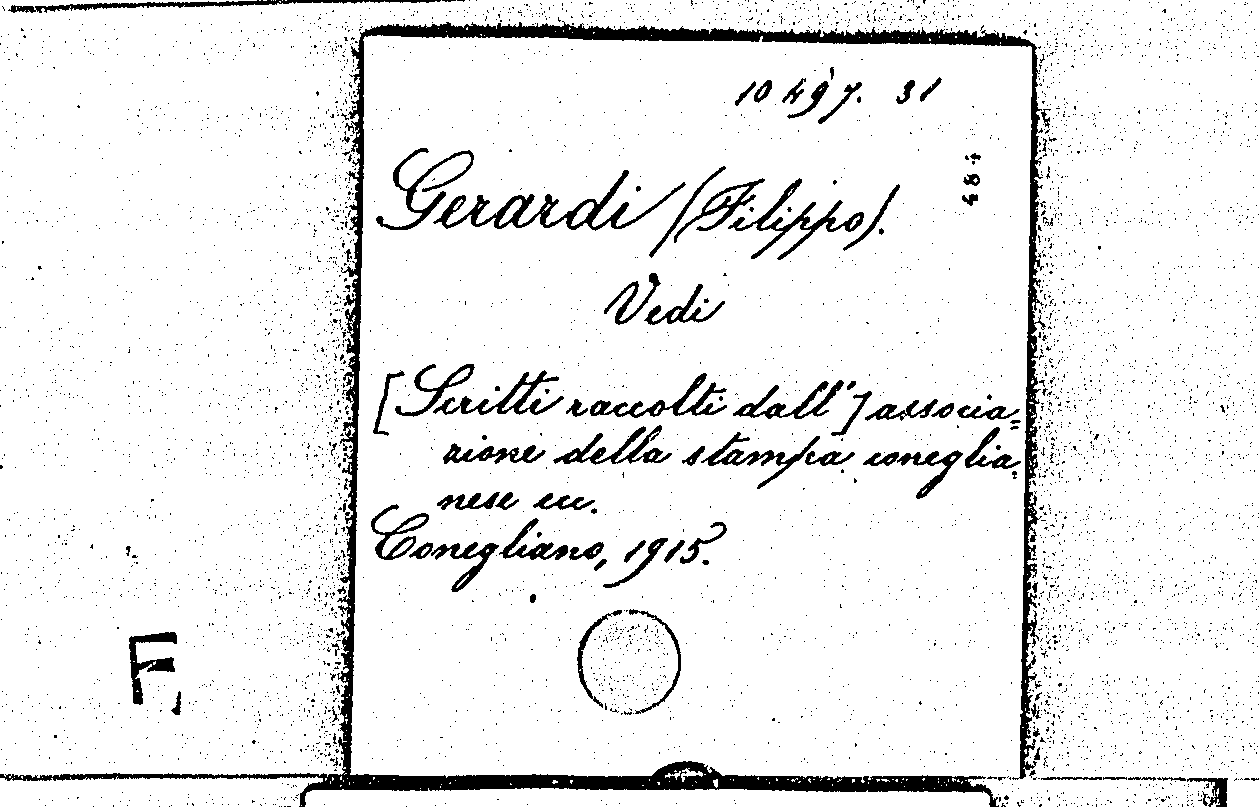 10497. 31
484
Gerardi (Filippo).
Vedi
[Scritti raccolti dall'] associa=
zione della stampa coneglia=
nese ecc.
Conegliano, 1915.
F.